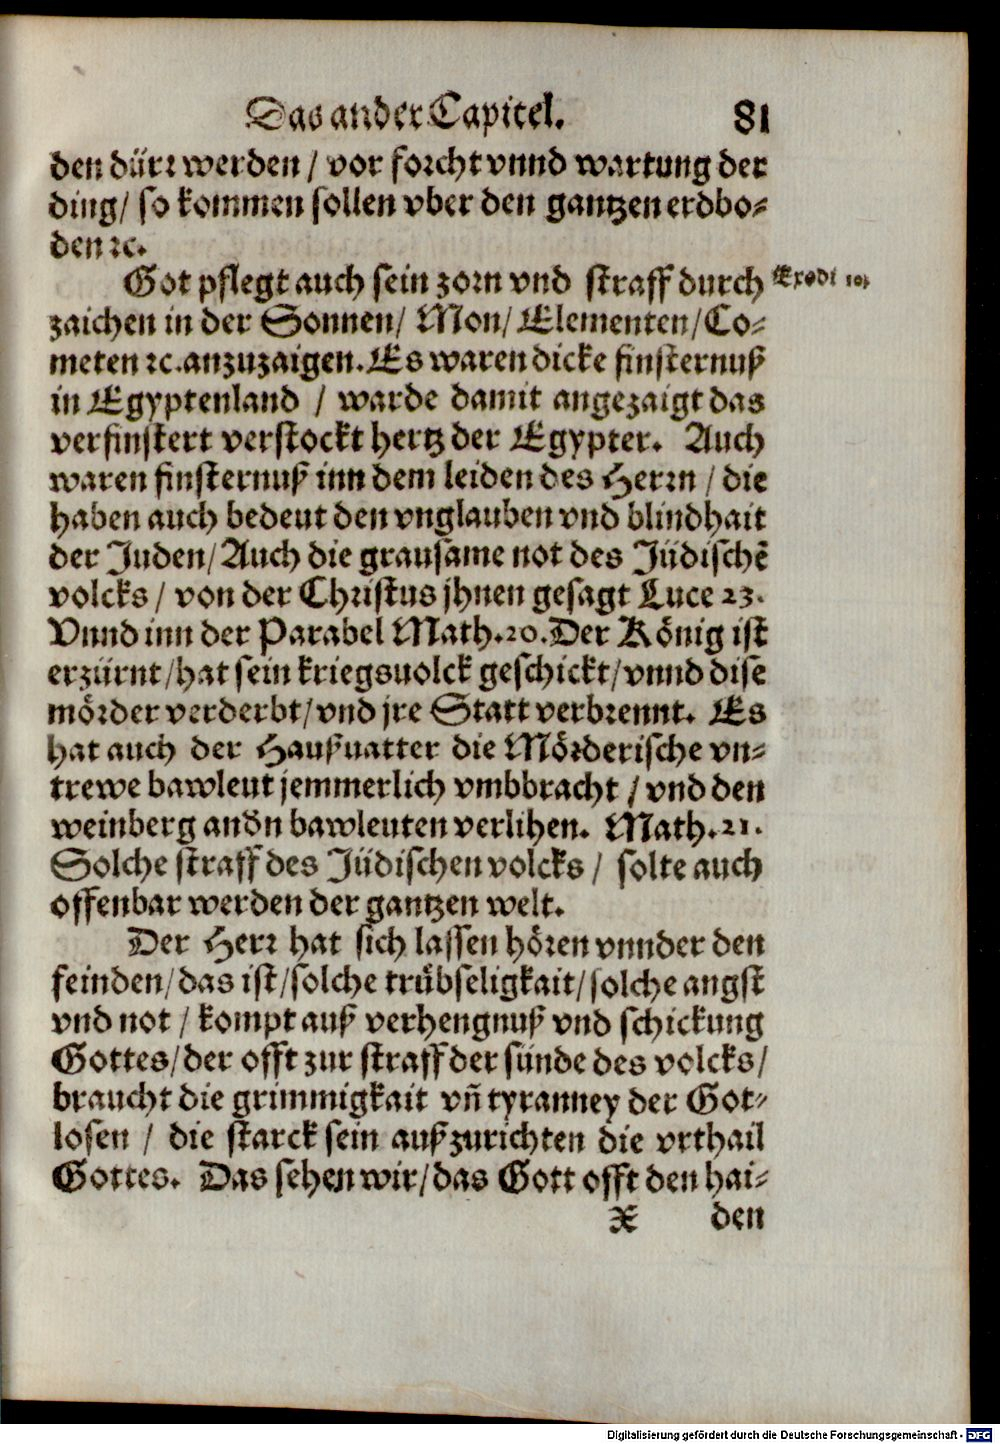 Das ander Capitel. 81
den dürr werden / vor forcht vnnd wartung der
ding/ so kommen sollen vber den gantzen erdbo-
den ꝛc.
Got pflegt auch sein zorn vnd straff durch
Exodi 10.
zaichen in der Sonnen/ Mon/ Elementen/Co-
meten ꝛc. anzuzaigen. Es waren dicke finsternuß
in Egyptenland / warde damit angezaigt das
verfinstert verstockt hertz der Egypter. Auch
waren finsternuß inn dem leiden des Herrn / die
haben auch bedeut den vnglauben vnd blindhait
der Juden/ Auch die grausame not des Jüdischẽ
volcks / von der Christus jhnen gesagt Luce 23.
Vnnd inn der Parabel Math. 20. Der König ist
erzürnt/hat sein kriegsuolck geschickt/vnnd dise
mörder verderbt/vnd jre Statt verbrennt. Es
hat auch der Haußuatter die Mörderische vn-
trewe bawleut jemmerlich vmbbracht / vnd den
weinberg andn bawleuten verlihen. Math. 21.
Solche straff des Jüdischen volcks / solte auch
offenbar werden der gantzen welt.
Der Herr hat sich lassen hören vnnder den
feinden/das ist/solche trübseligkait/solche angst
vnd not / kompt auß verhengnuß vnd schickung
Gottes/der offt zur straff der sünde des volcks/
braucht die grimmigkait vñ tyranney der Got-
losen / die starck sein außzurichten die vrthail
Gottes. Das sehen wir/das Gott offt den hai-
X den
Digitalisierung gefördert durch die Deutsche Forschungsgemeinschaft - DFG